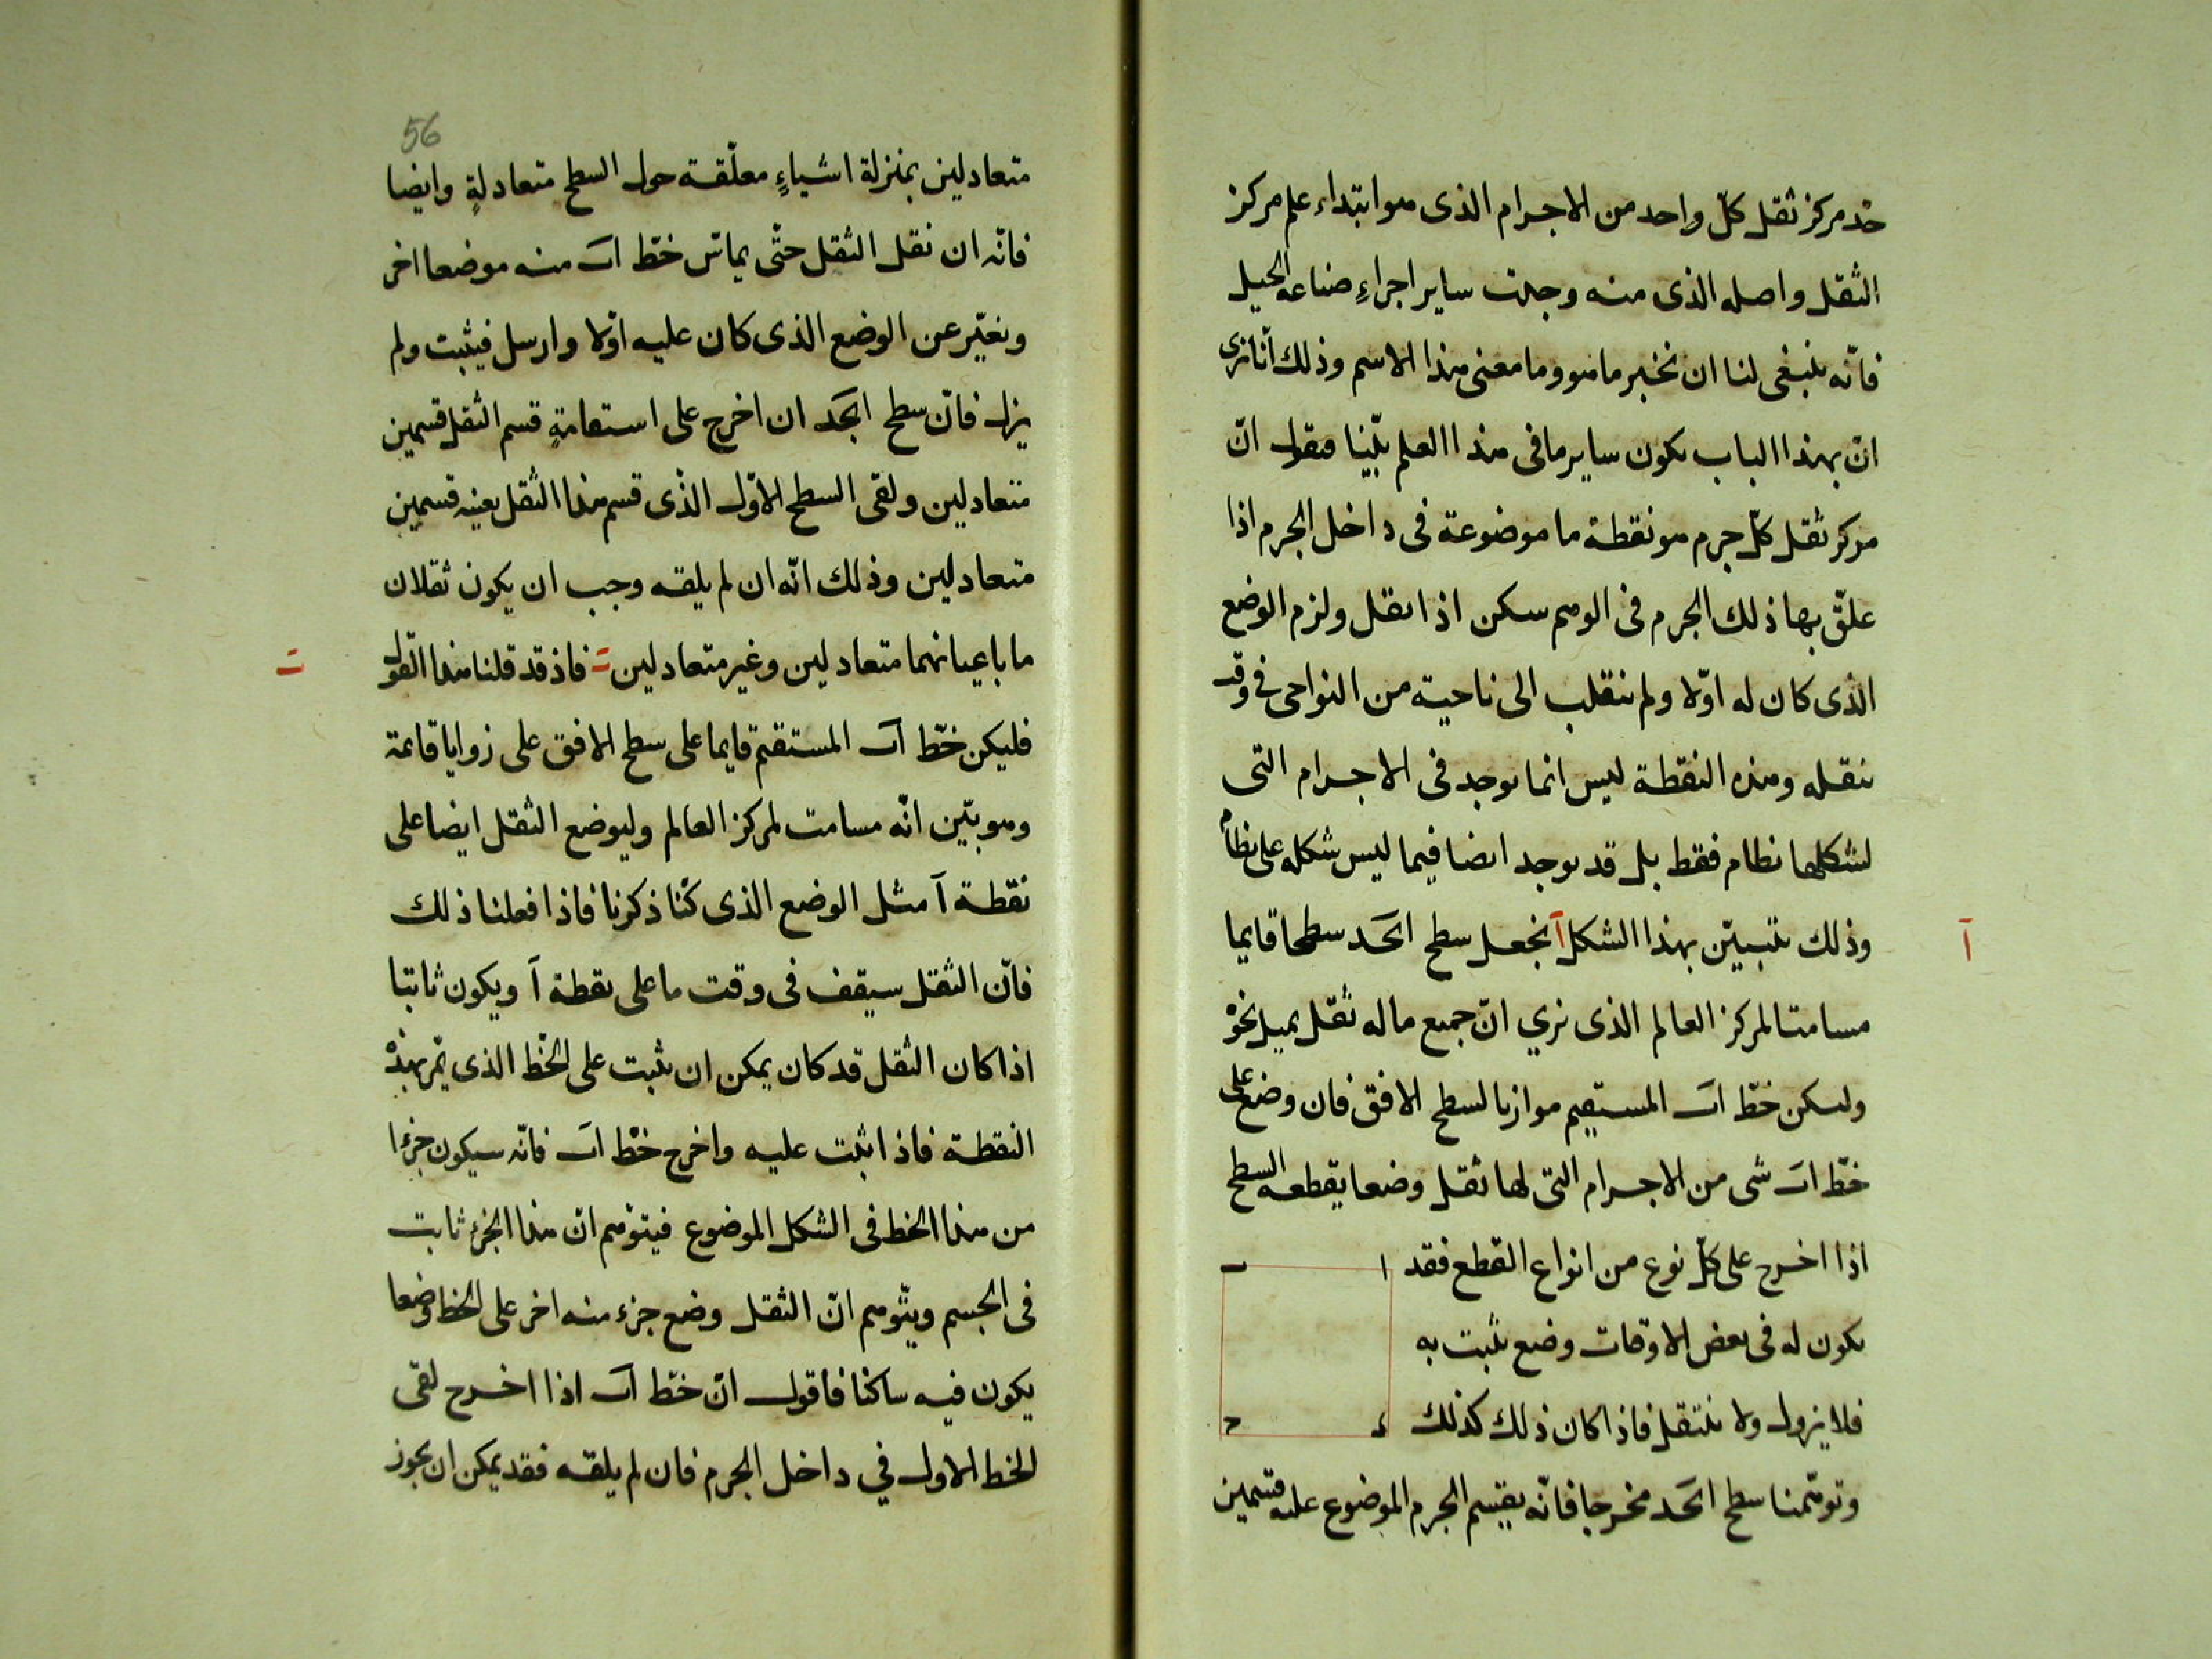 حد مركز ثقل كلّ واحد من الاجرام الذى هو ابتداء علم مركز
الثقل واصله الذى منه وجدت ساير اجزاءِ صناعة الحيل
فانّه ينبغى لنا ان نخبر ما هو وما معنى هذا الاسم وذلك أنّا نرى
انّ بهذا الباب يكون ساير ما فى هذا العلم بيّنا فنقول انّ
مركز ثقل كلّ جرم هو نقطة ما موضوعة فى داخل الجرم اذا
علّق بها ذلك الجرم فى الوهم سكن اذا نقل ولزم الوضع
الذى كان له اوّلا ولم ينقلب الى ناحية من النواحى فى وقت
نقله وهذه النقطة ليس انما يوجد فى الاجرام التى
لشكلها نظام فقط بل قد يوجد ايضا فيما ليس شكله على نظام
وذلك يتبيّن بهذا الشكل آ نجعل سطح ابجد سطحا قايما
آ
مسامتا لمركز العالم الذى نري انّ جميع ما له ثقل يميل نحوه
وليكن خطّ اب المستقيم موازيا لسطح الافق فان وضع على
خطّ اب شى من الاجرام التى لها ثقل وضعا يقطعه السطح
اذا اخرج على كلّ نوع من انواع القطع فقد
ا ب
يكون له فى بعض الاوقات وضع يثبت به
فلا يزول ولا ينتقل فاذا كان ذلك كذلك
د ح
وتوهّمنا سطح ابجد مخرجا فانّه يقسم الجرم الموضوع عليه قسمين
56
متعادلين بمنزلة اشياءٍ معلّقة حول السطح متعادلةٍ وايضا
فانّه ان نقل الثقل حتّى يماسّ خطّ اب منه موضعا اخر
ونغيّر عن الوضع الذى كان عليه اوّلا وارسل فيثبت ولم
يزل فانّ سطح ابجد ان اخرج على استقامةٍ قسم الثقل قسمين
متعادلين ولقى السطح الاوّل الذى قسم هذا الثقل بعينه قسمين
متعادلين وذلك انّه ان لم يلقه وجب ان يكون ثقلان
ما باعيانهما متعادلين وغير متعادلين ب فاذ قد قلنا هذا القول
ب
فليكن خطّ اب المستقيم قايما على سطح الافق على زوايا قائمة
وهو بيّن انّه مسامت لمركز العالم وليوضع الثقل ايضا على
نقطة آ مثل الوضع الذى كنّا ذكرنا فاذا فعلنا ذلك
فانّ الثقل سيقف فى وقت ما على نقطة آ ويكون ثابتا
اذا كان الثقل قد كان يمكن ان يثبت على الخطّ الذى يمّر بهذه
النقطة فاذا ثبت عليه واخرج خطّ اب فانّه سيكون جزءا
من هذا الخط فى الشكل الموضوع فيتوهم انّ هذا الجزء ثابت
فى الجسم ويتّوهم انّ الثقل وضع جزء منه اخر على الخط وضعا
يكون فيه ساكنا فاقول انّ خطّ اب اذا اخرج لقى
الخط الاول في داخل الجرم فان لم يلقه فقد يمكن ان يجوز